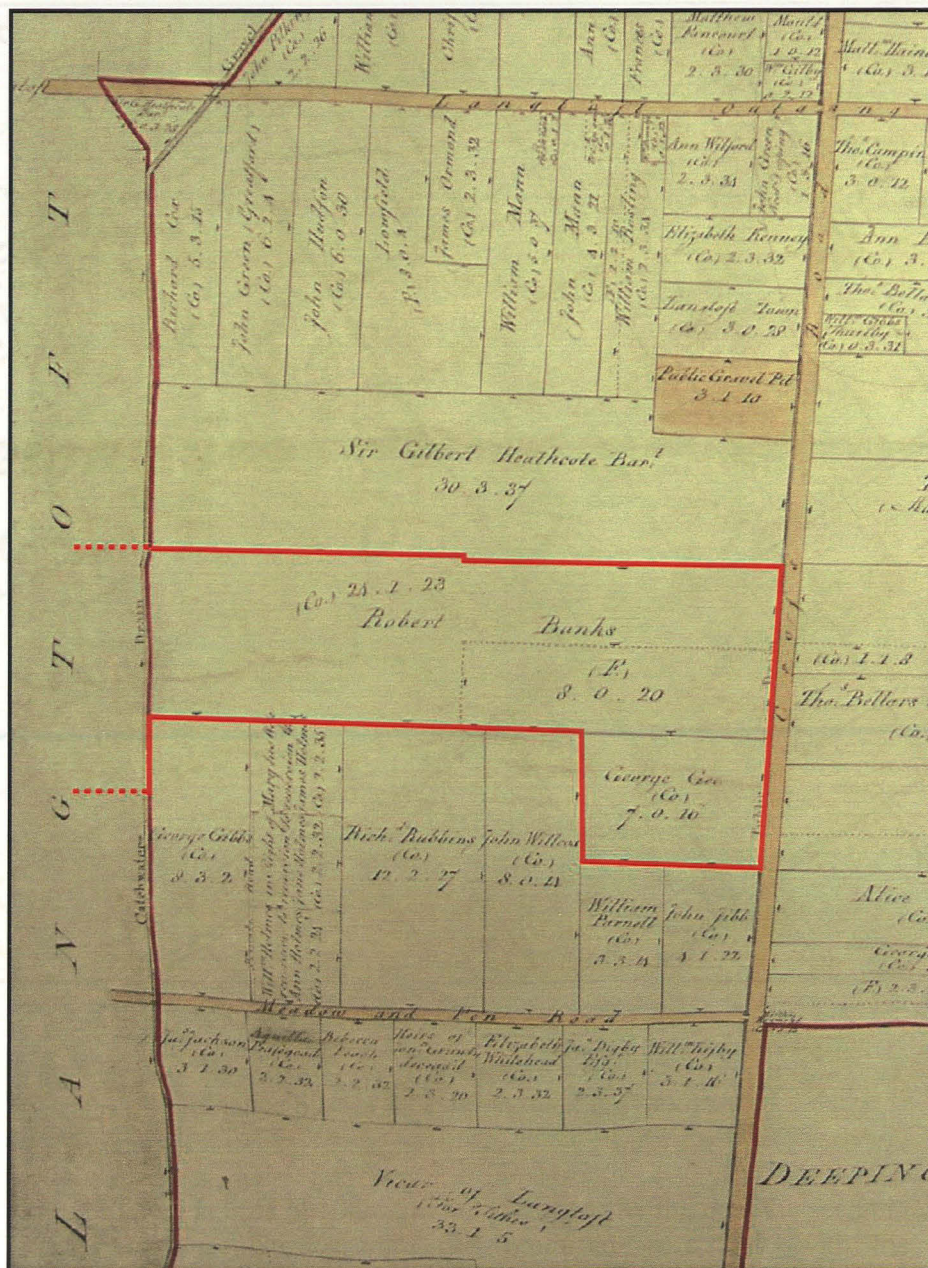 Gravel
(Co.)
2.2.26
William
(Co.)
Chris
Ann
(Co.)
Frances
(Co.)
Matthew
Fancourt
(Co.)
2.3.30
Mould
(Co.)
1.0.12
Wm Gilby
Matt.w Hain
(Co.) 3.1
Langtoft Outgang
Richard Cox
(Co.) 5.3.15
John Green (Greatford)
(Co.) 6.2.4
John Hudson
(Co.) 6.0.30
Lowfield
3.0.4
James Ormond
(Co.) 2.3.32
William Mann
(Co.) 5.0.7
John Mann
(Co.) 4.3.22
William Rosling
(Co.) 2.3.34
Ann Wilford
(Co.)
2.3.34
John Green
(Co.) 1.3.16
Tho.s Campin
(Co.)
3.0.12
Elizabeth Kenney
(Co.) 2.3.32
Ann
(Co.) 3.
Langtoft Town
(Co.) 3.0.28
Tho.s Bella
(Co.)
Will.m Gibbs
Thurlby
(Co.) 0.3.31
Public Gravel Pit
3.1.10
Sir Gilbert Heathcote Bar.t
30.3.37
Road
LANGTOFT
Drain
(Co.) 24.1.23
Robert Banks
(F.)
8.0.20
(Co.) 1.1.8
Tho.s Bellars
(Co.)
George Gee
(Co.)
7.0.16
Public
Catchwater
George Gibbs
(Co.)
8.3.2
Private Road
Will.m Holmes in right of Mary his Wife
Ann Holmes Jane Holmes James Holmes
(Co.) 2.2.24 (Co.) 2.2.32 (Co.) 2.2.35
Rich.d Rubbins
(Co.)
12.2.27
John Willcox
(Co.)
8.0.14
William
Parnell
(Co.)
3.3.14
John Jibb
(Co.)
4.1.22
Alice
(Co.
George
(F.) 2.3.
Meadow and Fen Road
Ja.s Jackson
(Co.)
3.1.30
(Co.)
2.2.32
Rebecca
(Co.)
2.2.32
Heirs of
Grants
deceased
(Co.)
2.3.20
Elizabeth
Whitehead
(Co.)
2.3.32
Ja.s Digby
Esq.
(Co.)
2.3.37
Will.m Digby
(Co.)
3.1.16
Vicar of Langtoft
(For Tithes)
33.1.5
DEEPING